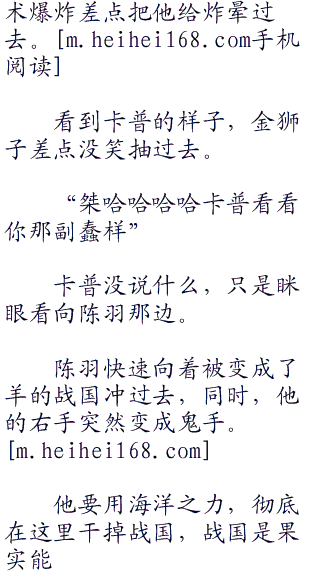 术爆炸差点把他给炸晕过
去。[m.heihei168.com手机
阅读]
看到卡普的样子，金狮
子差点没笑抽过去。
“桀哈哈哈哈卡普看看
你那副蠢样”
卡普没说什么，只是眯
眼看向陈羽那边。
陈羽快速向着被变成了
羊的战国冲过去，同时，他
的右手突然变成鬼手。
[m.heihei168.com]
他要用海洋之力，彻底
在这里干掉战国，战国是果
实能